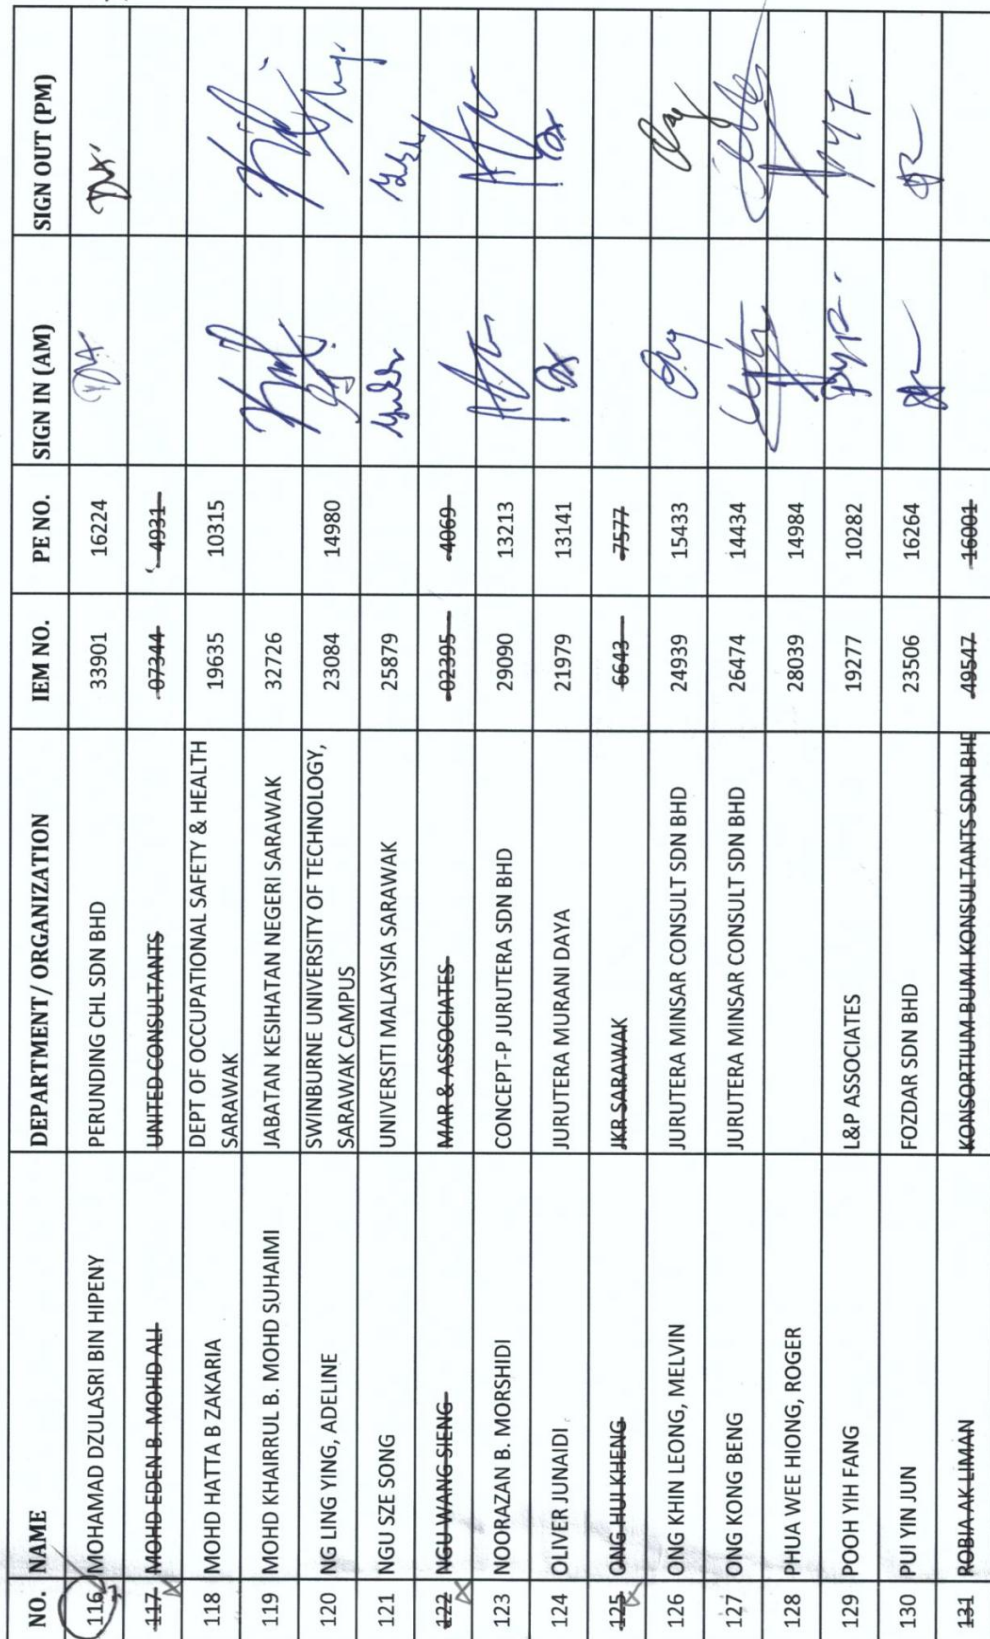 NO. NAME DEPARTMENT / ORGANIZATION IEM NO. PE NO. SIGN IN (AM) SIGN OUT (PM)
116 MOHAMAD DZULASRI BIN HIPENY PERUNDING CHL SDN BHD 33901 16224
117 MOHD EDEN B. MOHD ALI UNITED CONSULTANTS 07344 4931
118 MOHD HATTA B ZAKARIA DEPT OF OCCUPATIONAL SAFETY & HEALTH 19635 10315
SARAWAK
119 MOHD KHAIRRUL B. MOHD SUHAIMI JABATAN KESIHATAN NEGERI SARAWAK 32726
120 NG LING YING, ADELINE SWINBURNE UNIVERSITY OF TECHNOLOGY, 23084 14980
SARAWAK CAMPUS
121 NGU SZE SONG UNIVERSITI MALAYSIA SARAWAK 25879
122 NGU WANG SIENG MAR & ASSOCIATES 02395 4069
123 NOORAZAN B. MORSHIDI CONCEPT-P JURUTERA SDN BHD 29090 13213
124 OLIVER JUNAIDI JURUTERA MURANI DAYA 21979 13141
125 ONG HUI KHENG JKR SARAWAK 6643 7577
126 ONG KHIN LEONG, MELVIN JURUTERA MINSAR CONSULT SDN BHD 24939 15433
127 ONG KONG BENG JURUTERA MINSAR CONSULT SDN BHD 26474 14434
128 PHUA WEE HIONG, ROGER 28039 14984
129 POOH YIH FANG L&P ASSOCIATES 19277 10282
130 PUI YIN JUN FOZDAR SDN BHD 23506 16264
131 ROBIA AK LIMAN KONSORTIUM BUMI KONSULTANTS SDN BHD 49547 16001